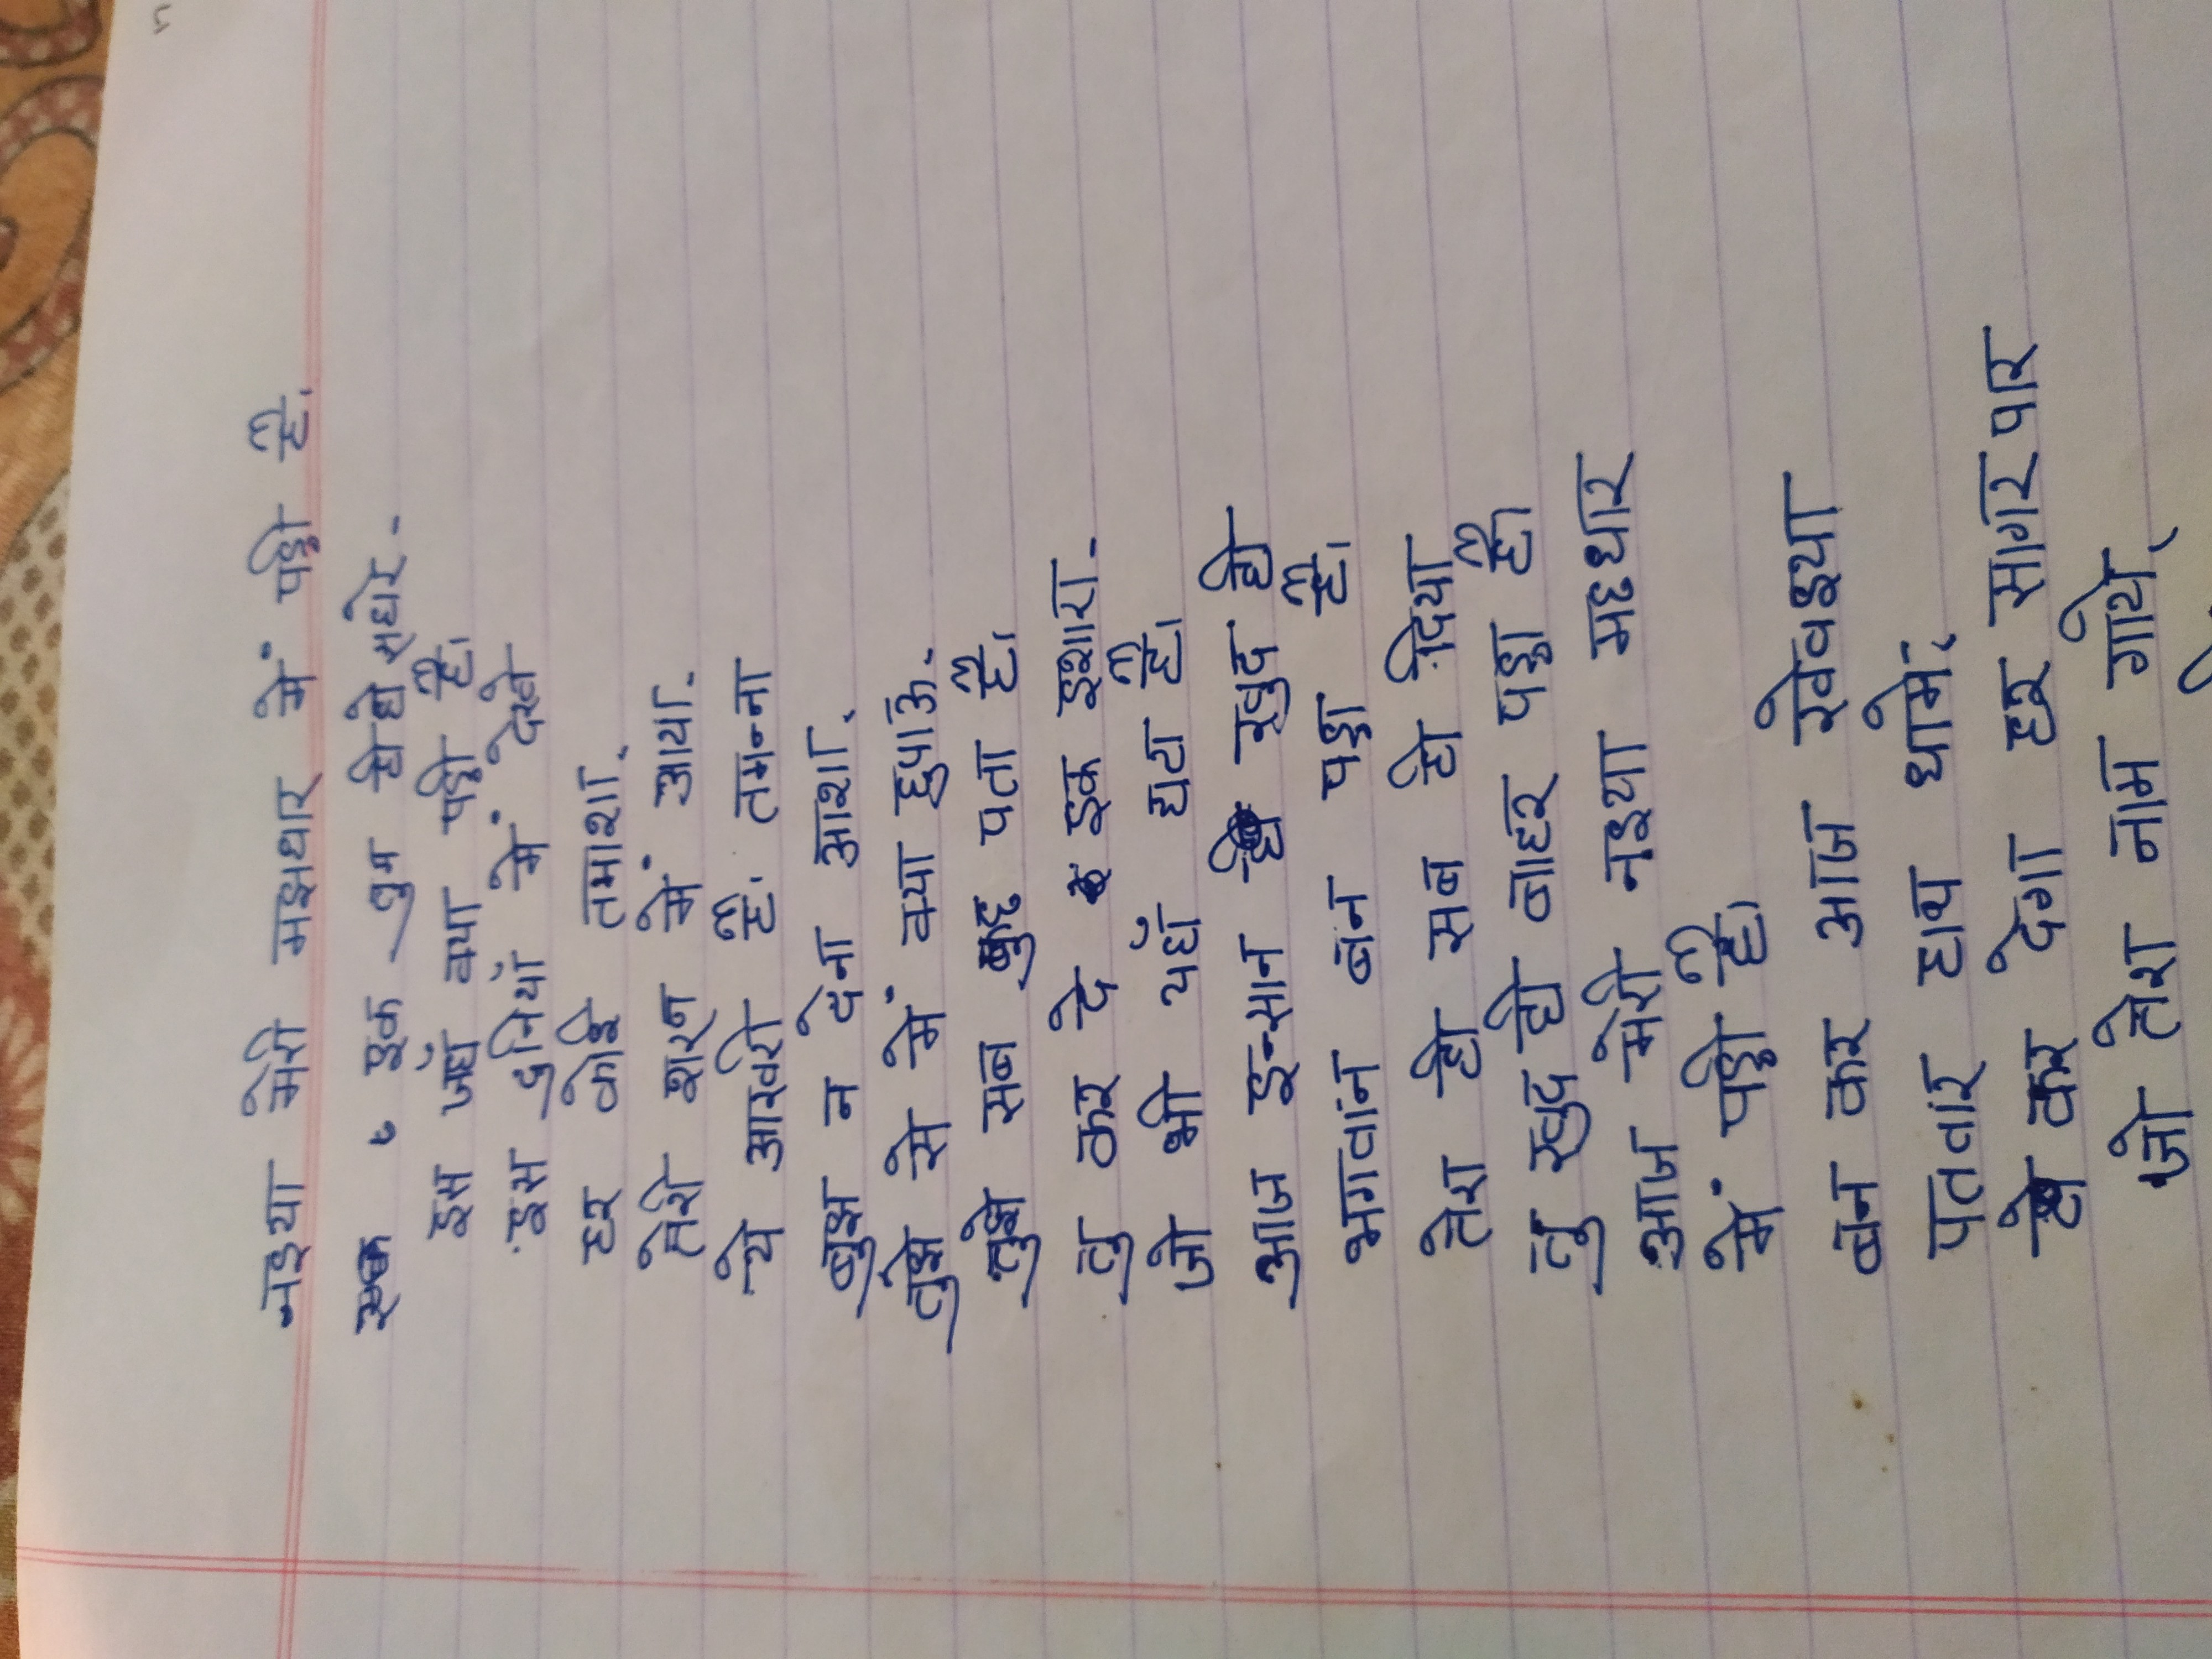 नइया मेरी मझधार में पड़ी है।
इक तुम ही हो सधोर.
इस जहाँ क्या पड़ी है।
इस दुनियाँ में देखे
हर कोई तमाशा.
तेरी शरण में आया.
ये आखरी है. तमन्ना
बुझ न देना आशा.
तुझे से में क्या छुपाऊ.
तुझे सब कुछ पता है।
तु कर दे इक इशारा.
जो भी यहाँ घटा है।
आज इन्सान ही खुद ही
भगवांन बंन पड़ा है.
तेरा ही सब ही दिया
तुं खुद ही बाहर पड़ा है।
आज मेरी नइया मदधार
में पड़ी है।
बंन कर आज खेवइया
पतवांर हाथ थामें.
कर देगा हर सागर पार
जो तेरा नाम गाये.